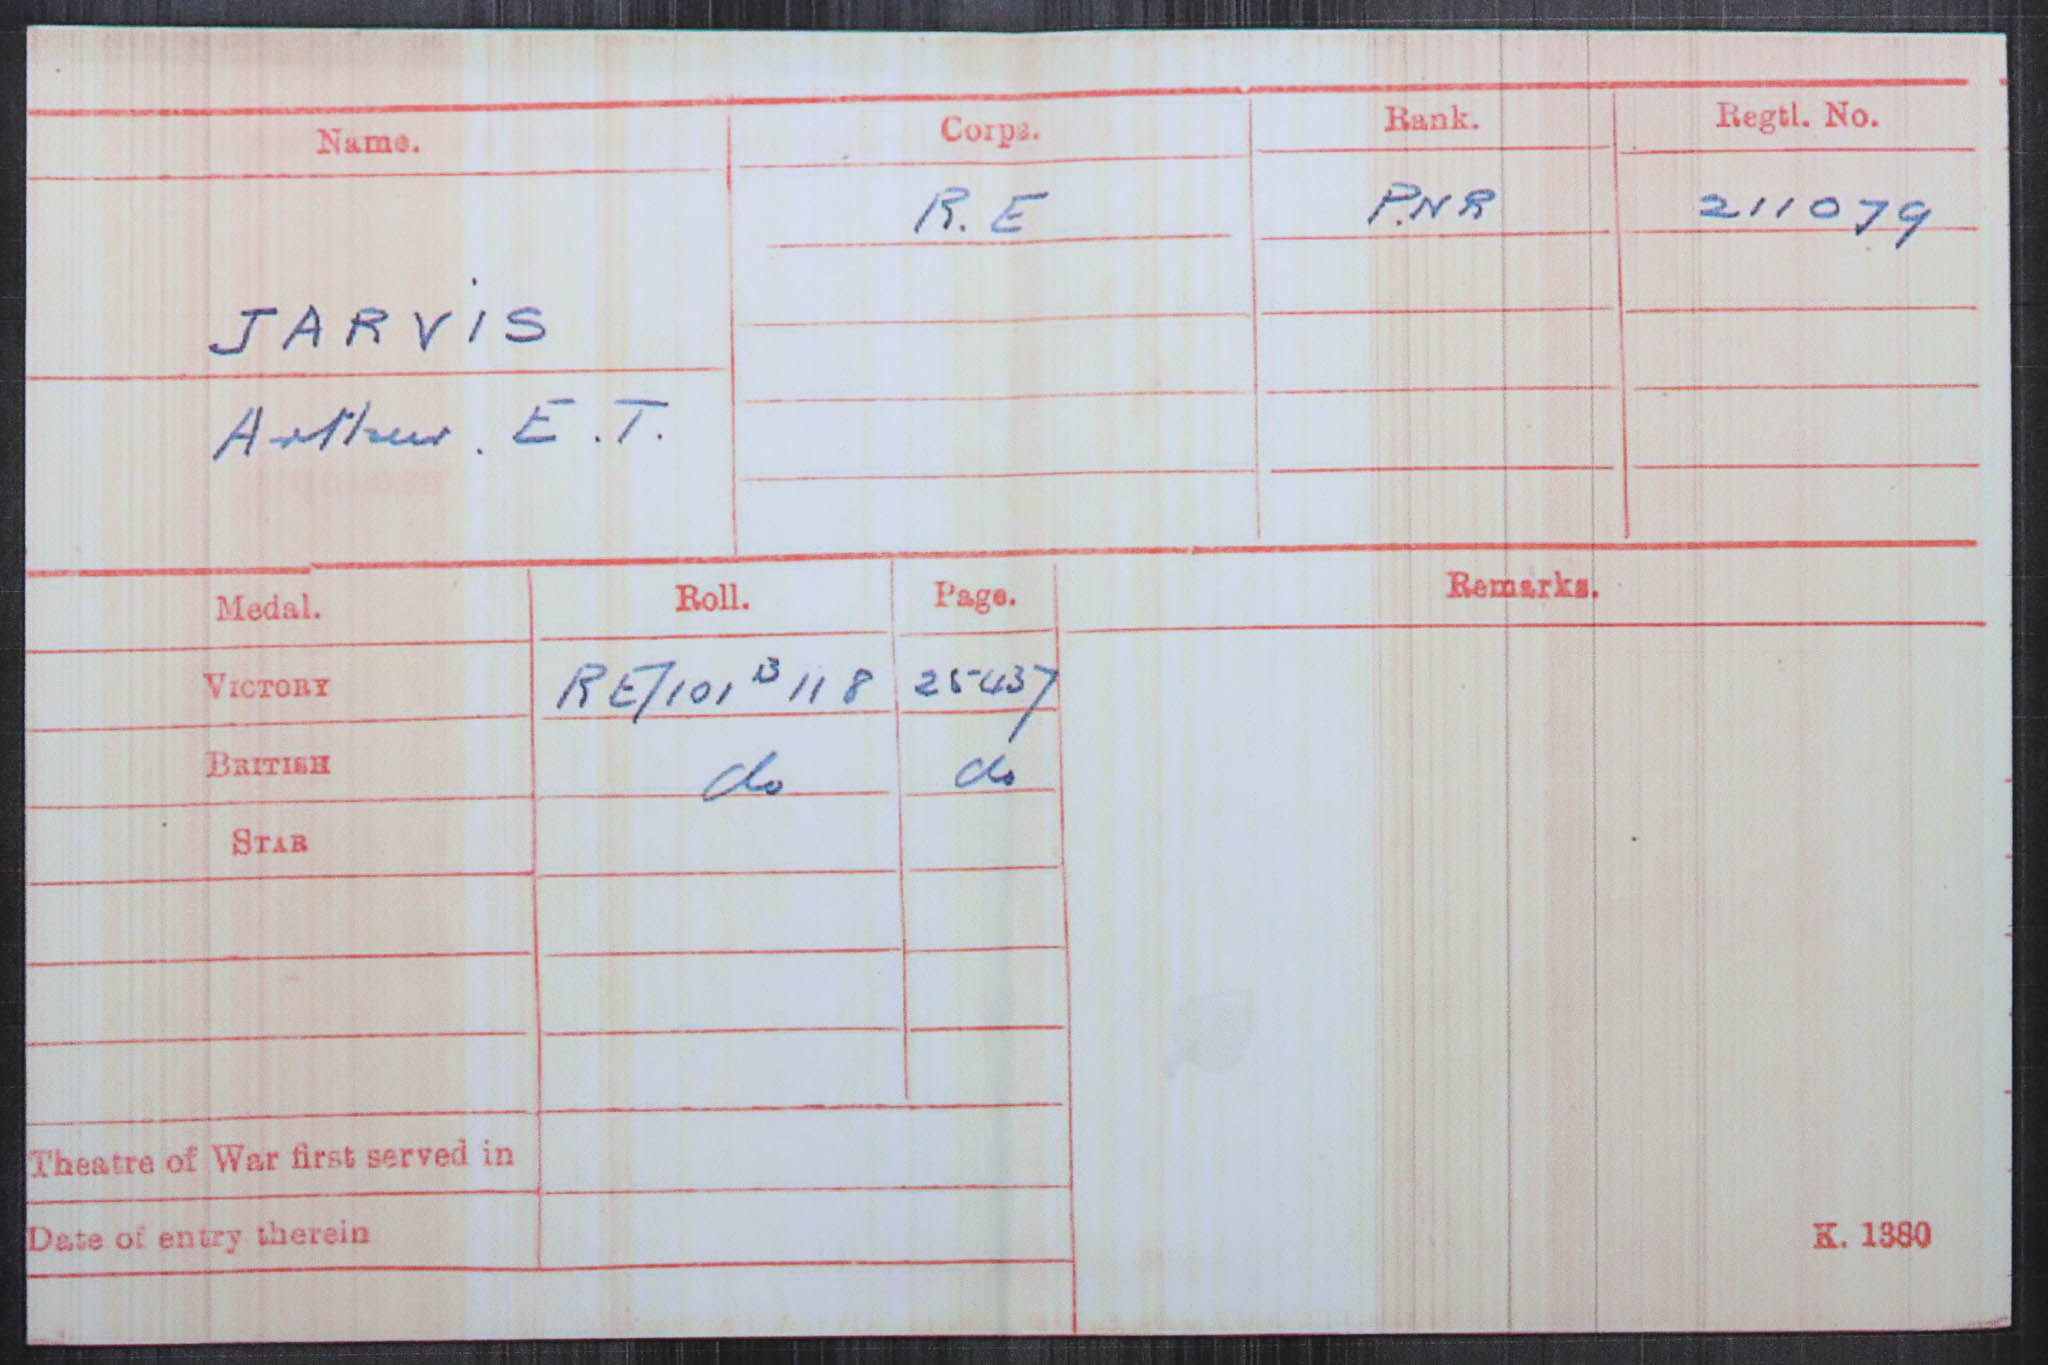 Name. Corps. Rank. Regtl. No.
R. E P.NR 211079
JARVIS
Arthur. E.T.
Medal. Roll. Page. Remarks.
VICTORY RE/101 B 118 25437
BRITISH do do
STAR
Theatre of War first served in
Date of entry therein
K. 1380